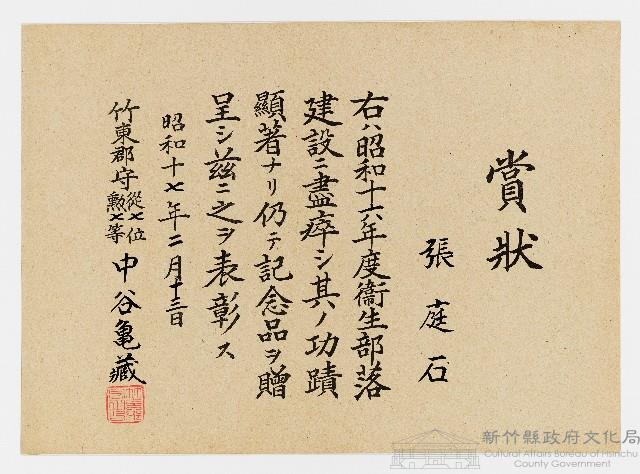 賞狀
張庭石
右ハ昭和十六年度衞生部落
建設ニ盡瘁シ其ノ功蹟
顯著ナリ仍テ記念品ヲ贈
呈シ茲ニ之ヲ表彰ス
昭和十七年二月十三日
竹東郡守從七位勲七等中谷亀藏
新竹縣政府文化局
Cultural Affairs Bureau of Hsinchu
County Government